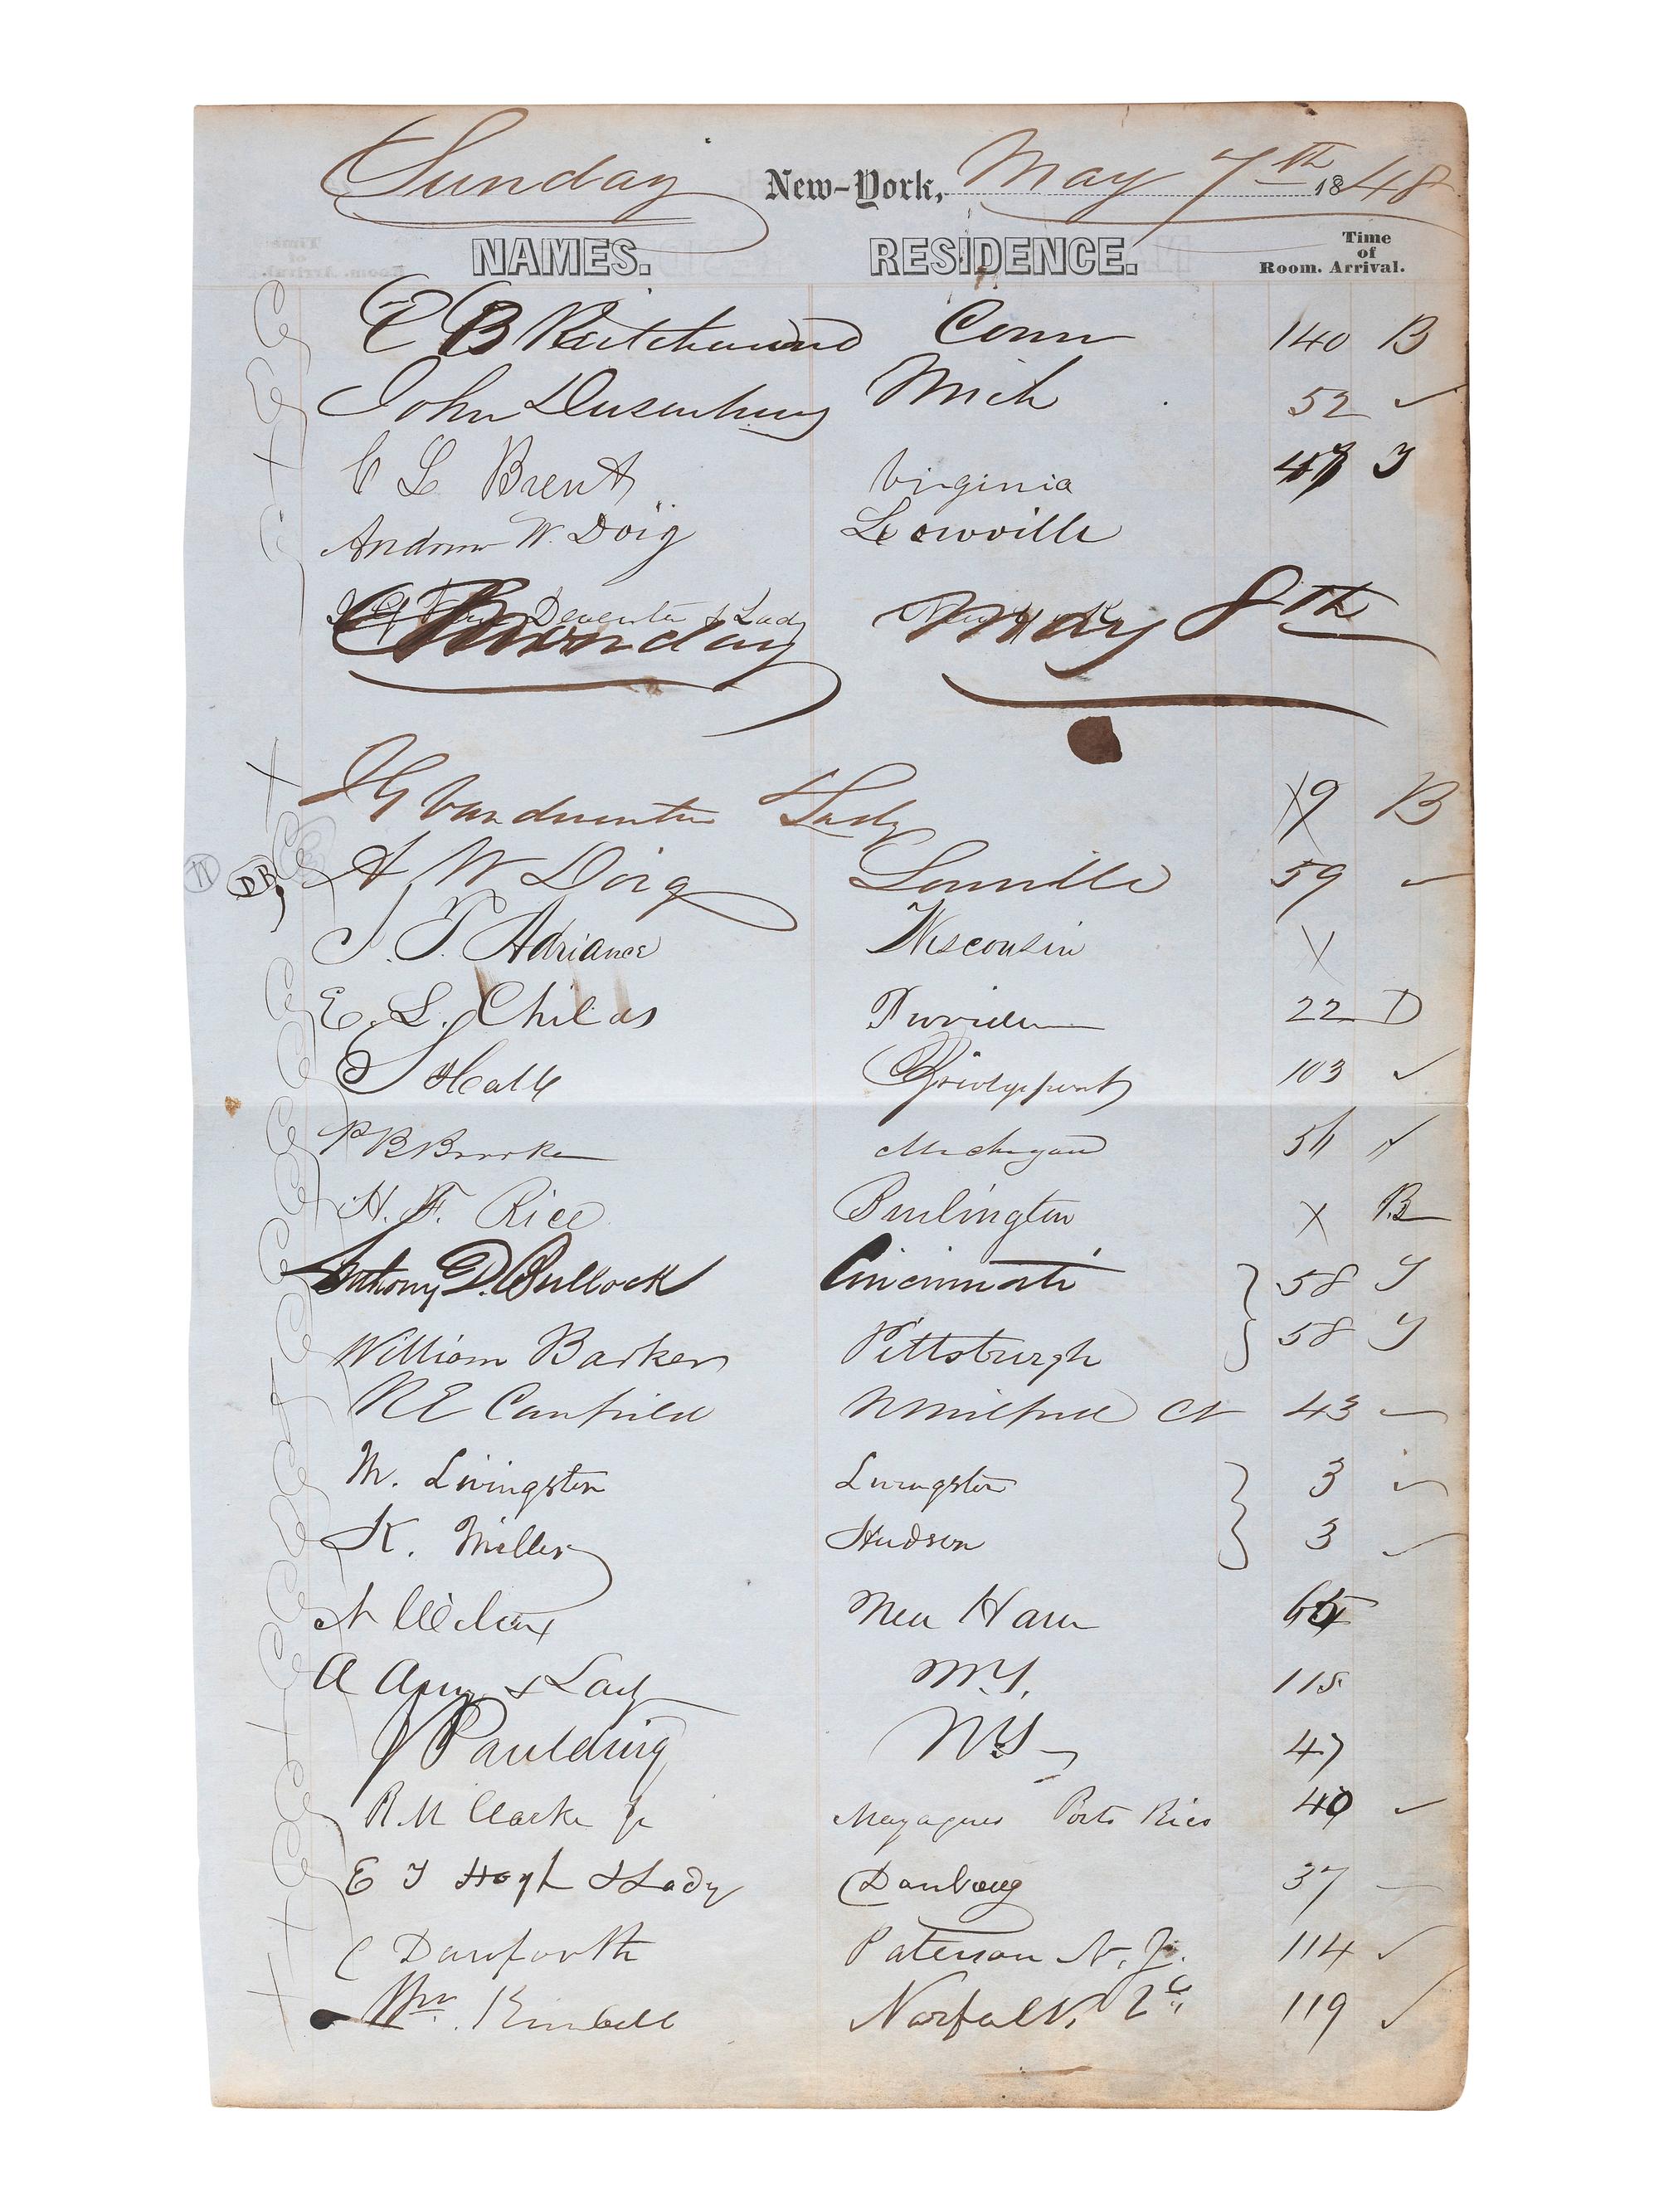 Sunday New-York, May 7th 1848
NAMES. RESIDENCE. Room. Time of Arrival.
E B Conn 140 B
John Dusenbury Mich 52 ✓
C L Brent Virginia
Andrew W. Doig Lowville
Deventer & Lady
Monday May 8th
H Vandeventer & Lady 9 B
DB A W Doig Lowville 59 ✓
J. T. Adriance Wisconsin X
E. L. Childs 22 D
S Hall Bridgeport 103 ✓
P B Brooks Michigan
H. F. Rice Burlington X B
Anthony D. Bullock Cincinnati 58 Y
William Barker Pittsburgh 58 Y
R E Canfield N Milford Ct 43
M. Livingston Livingston 3 ✓
K. Miller Hudson 3 ✓
N New Haven
A & Lady N.Y. 115
J Paulding N.Y 47
R. M Clarke Jr Mayagues Porto Rico 40 ✓
E T Hoyt & Lady Danbury 37
C Danforth Paterson N. J. 114 ✓
Wm. Kimball Norfolk 119 ✓